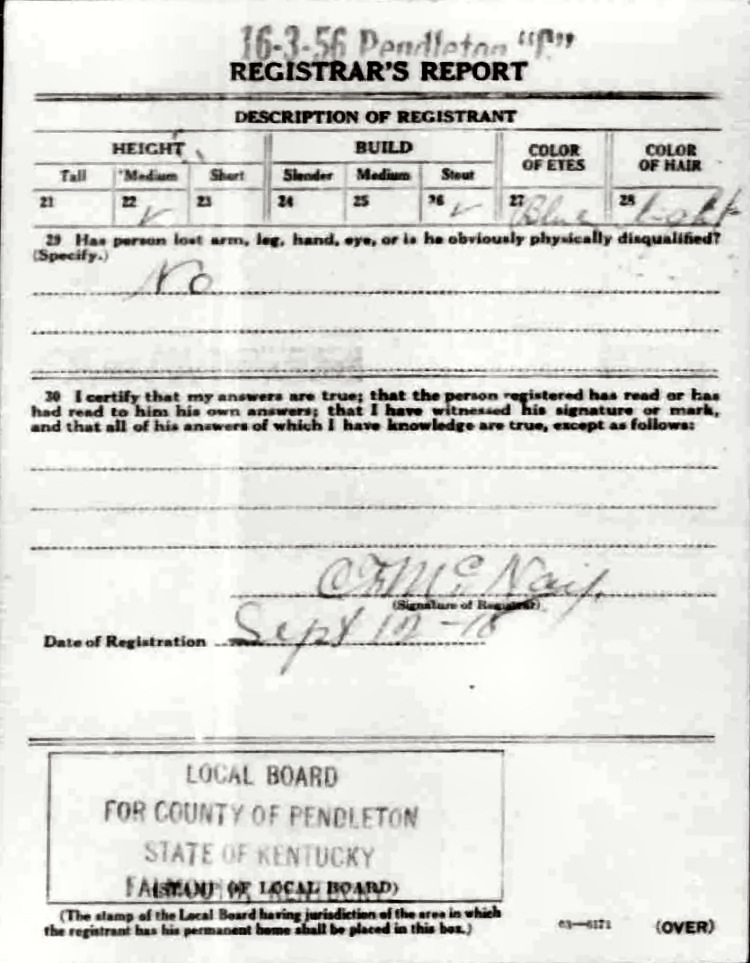 16-3-56 Pendleton "C"
REGISTRAR'S REPORT
DESCRIPTION OF REGISTRANT
HEIGHT BUILD COLOR OF EYES COLOR OF HAIR
Tall Medium Short Slender Medium Stout
21 22 ✓ 23 24 25 26 ✓ 27 Blue 28 Light
29 Has person lost arm, leg, hand, eye, or is he obviously physically disqualified?
(Specify.)
No
30 I certify that my answers are true; that the person registered has read or has
had read to him his own answers; that I have witnessed his signature or mark,
and that all of his answers of which I have knowledge are true, except as follows:
(Signature of Registrar)
Date of Registration Sept 12-18
LOCAL BOARD
FOR COUNTY OF PENDLETON
STATE OF KENTUCKY
(STAMP OF LOCAL BOARD)
(The stamp of the Local Board having jurisdiction of the area in which
the registrant has his permanent home shall be placed in this box.)
03—6171 (OVER)